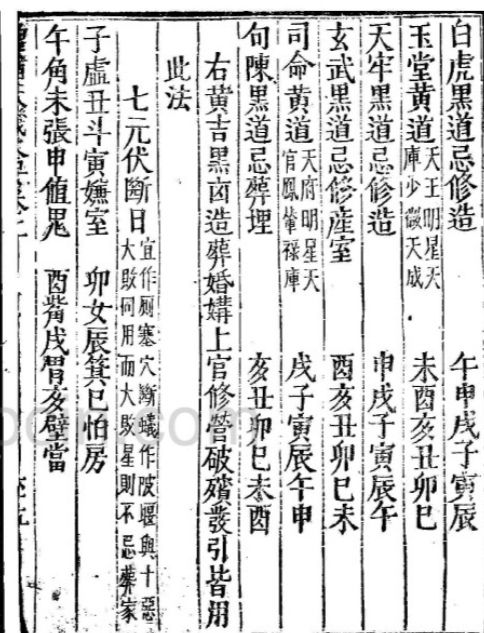 白虎黑道忌修造 午申戌子寅辰
玉堂黄道天王明星天庫少微天成 未酉亥丑卯巳
天牢黑道忌修造 申戌子寅辰午
玄武黑道忌修産室 酉亥丑卯巳未
司命黄道天府明星天官鳳輦祿庫 戌子寅辰午申
句陳黑道忌葬埋 亥丑卯巳未酉
右黄吉黑凶造葬婚媾上官修營破殯發引皆用
此法
七元伏斷日宜作厠塞穴斷蟻作陂堰與十惡大敗同用而大敗星則不忌葬家
子虛丑斗寅嫌室 卯女辰箕巳怕房
午角未張申值鬼 酉觜戌胃亥壁當